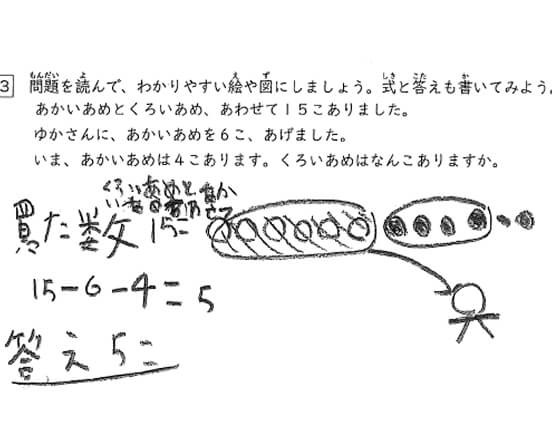 3 問題を読んで、わかりやすい絵や図にしましょう。式と答えも書いてみよう。
あかいあめとくろいあめ、あわせて15こありました。
ゆかさんに、あかいあめを6こ、あげました。
いま、あかいあめは4こあります。くろいあめはなんこありますか。
くろいあめとあか
買た数 15=
15-6-4=5
答え5こ